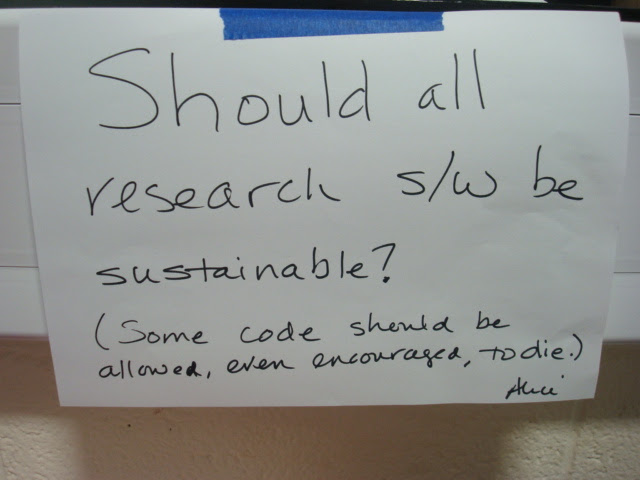 Should all
research s/w be
sustainable?
(Some code should be
allowed, even encouraged, to die.)
Alice